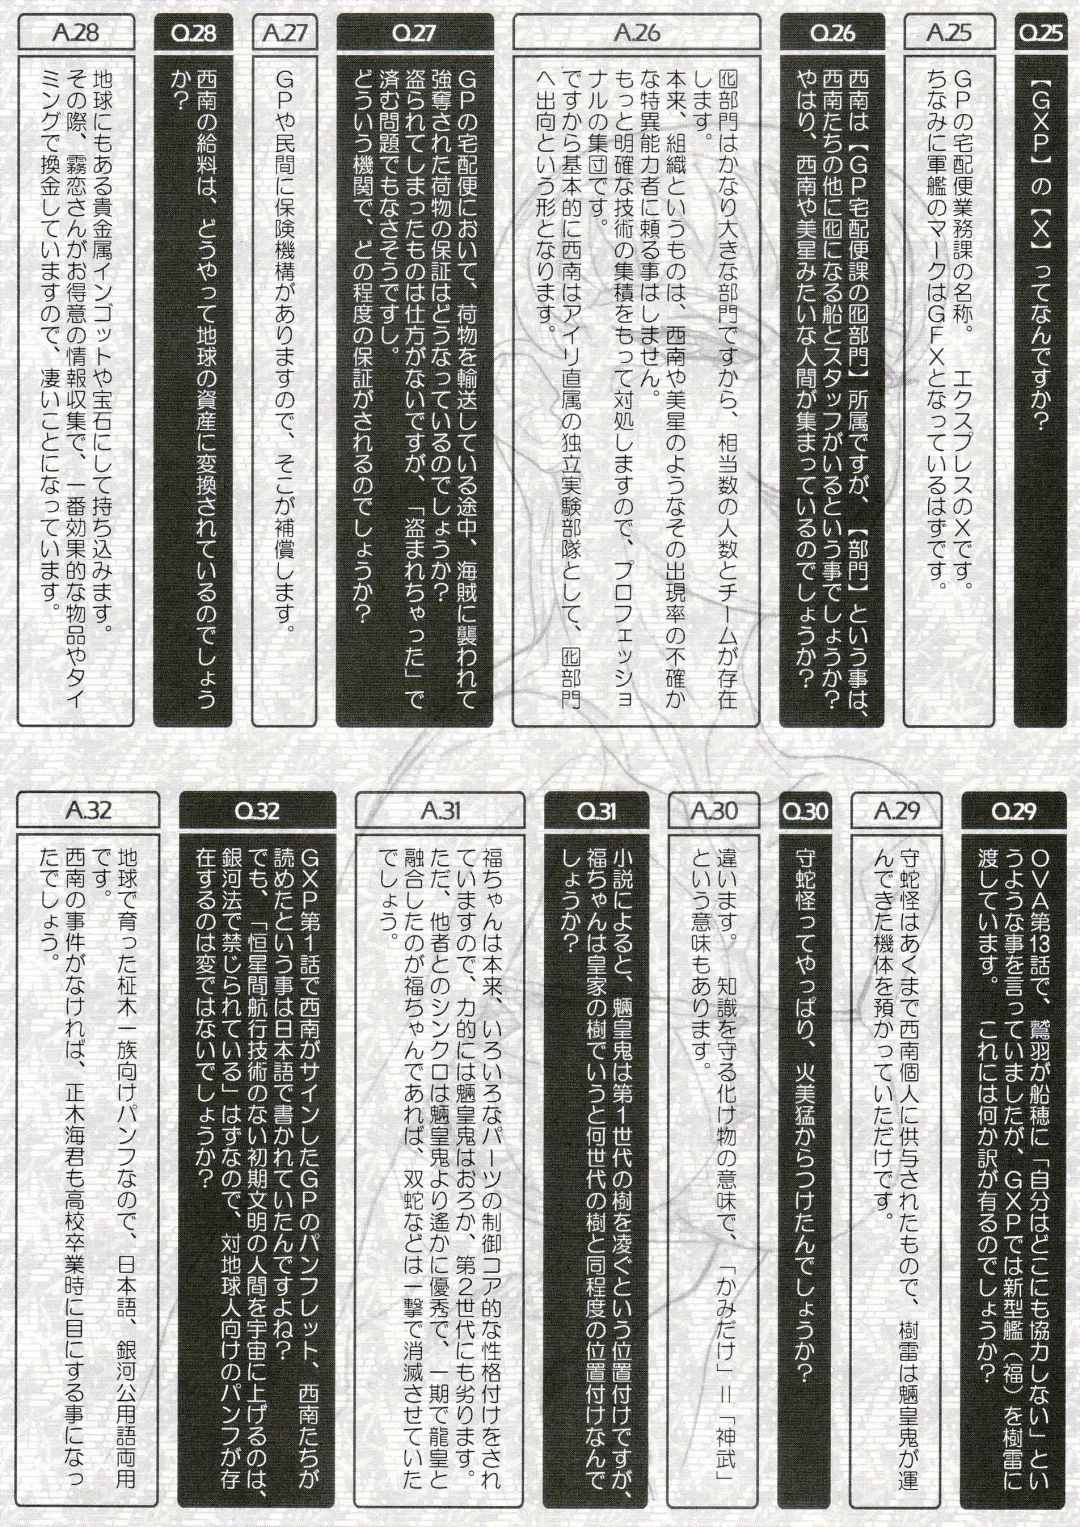 Q.25
【GXP】の【X】ってなんですか?
A.25
GPの宅配便業務課の名称。 エクスプレスのXです。
ちなみに軍艦のマークはGFXとなっているはずです。
Q.26
西南は【GP宅配便課の囮部門】所属ですが、【部門】という事は、
西南たちの他に囮になる船とスタッフがいるという事でしょうか?
やはり、西南や美星みたいな人間が集まっているのでしょうか?
A.26
囮部門はかなり大きな部門ですから、相当数の人数とチームが存在
します。
本来、組織というものは、西南や美星のようなその出現率の不確か
な特異能力者に頼る事はしません。
もっと明確な技術の集積をもって対処しますので、プロフェッショ
ナルの集団です。
ですから基本的に西南はアイリ直属の独立実験部隊として、囮部門
へ出向という形となります。
Q.27
GPの宅配便において、荷物を輸送している途中、海賊に襲われて
強奪された荷物の保証はどうなっているのでしょうか?
盗られてしまったものは仕方がないですが、「盗まれちゃった」で
済む問題でもなさそうですし。
どういう機関で、どの程度の保証がされるのでしょうか?
A.27
GPや民間に保険機構がありますので、そこが補償します。
Q.28
西南の給料は、どうやって地球の資産に変換されているのでしょう
か?
A.28
地球にもある貴金属インゴットや宝石にして持ち込みます。
その際、霧恋さんがお得意の情報収集で、一番効果的な物品やタイ
ミングで換金していますので、凄いことになっています。
Q.29
OVA第13話で、鷲羽が船穂に「自分はどこにも協力しない」とい
うような事を言っていましたが、GXPでは新型艦(福)を樹雷に
渡しています。 これには何か訳が有るのでしょうか?
A.29
守蛇怪はあくまで西南個人に供与されたもので、樹雷は魎皇鬼が運
んできた機体を預かっていただけです。
Q.30
守蛇怪ってやっぱり、火美猛からつけたんでしょうか?
A.30
違います。 知識を守る化け物の意味で、「かみだけ」=「神武」
という意味もあります。
Q.31
小説によると、魎皇鬼は第1世代の樹を凌ぐという位置付けですが、
福ちゃんは皇家の樹でいうと何世代の樹と同程度の位置付けなんで
しょうか?
A.31
福ちゃんは本来、いろいろなパーツの制御コア的な性格付けをされ
ていますので、力的には魎皇鬼はおろか、第2世代にも劣ります。
ただ、他者とのシンクロは魎皇鬼より遙かに優秀で、一期で龍皇と
融合したのが福ちゃんであれば、双蛇などは一撃で消滅させていた
でしょう。
Q.32
GXP第1話で西南がサインしたGPのパンフレット、西南たちが
読めたという事は日本語で書かれていたんですよね?
でも、「恒星間航行技術のない初期文明の人間を宇宙に上げるのは、
銀河法で禁じられている」はずなので、対地球人向けのパンフが存
在するのは変ではないでしょうか?
A.32
地球で育った柾木一族向けパンフなので、日本語、銀河公用語両用
です。
西南の事件がなければ、正木海君も高校卒業時に目にする事になっ
たでしょう。